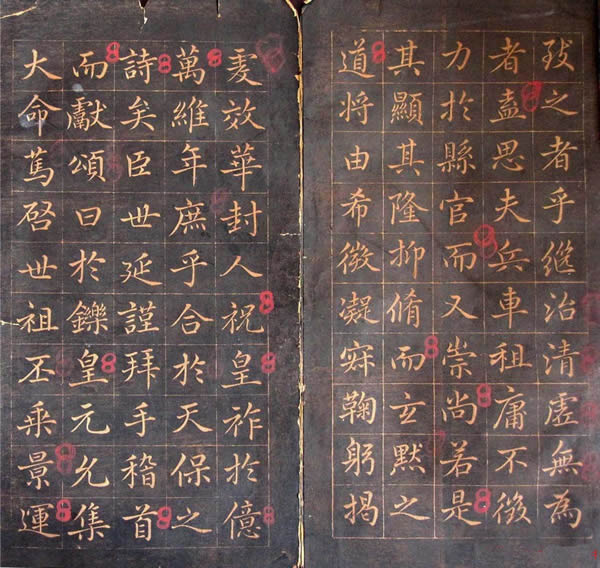 致之者乎継治清虛無為
者盍思夫兵車租庸不徵
力扵縣官而又崇尚若是
其顯其隆抑脩而玄默之
道将由希微凝寂鞠躬揭
虔效華封人祝皇祚扵億
萬維年庶乎合扵天保之
詩矣臣世延謹拜手稽首
而獻頌曰扵鑠皇元允集
大命篤啓世祖丕乗景運